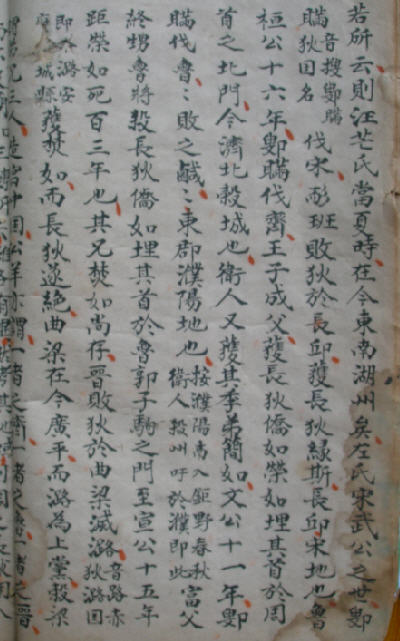 若所云則汪芒氏當夏時在今東南湖州矣左氏宋武公之世鄋
瞞音搜鄋瞞狄国名伐宋耏班敗狄於長邱獲長狄緣斯長邱宋地也魯
桓公十六年鄋瞞伐齊王子成父獲長狄僑如榮如埋其首於周
首之北門今濟北穀城也衛人又獲其季弟簡如文公十一年鄋
瞞伐魯〻敗之鹹〻東郡濮陽地也按濮陽南入鉅野春秋衛人殺州吁於濮即此富父
終甥魯將殺長狄僑如埋其首於魯郭子駒之門至宣公十五年
距榮如死百三年也其兄焚如尚存晉敗狄於曲梁滅潞音路赤狄潞国
即今潞安城縣獲焚如而長狄遂絶曲梁在今廣平而潞為上黨穀梁